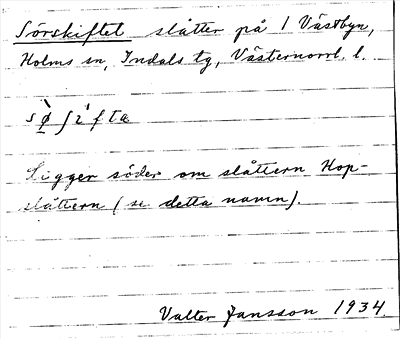 Sörskiftet slåtter på 1 Västbyn,
Holms sn, Indals tg, Västernorrl. l.
Ligger söder om slåttern Hop-
slåttern (se detta namn).
Valter Jansson 1934.